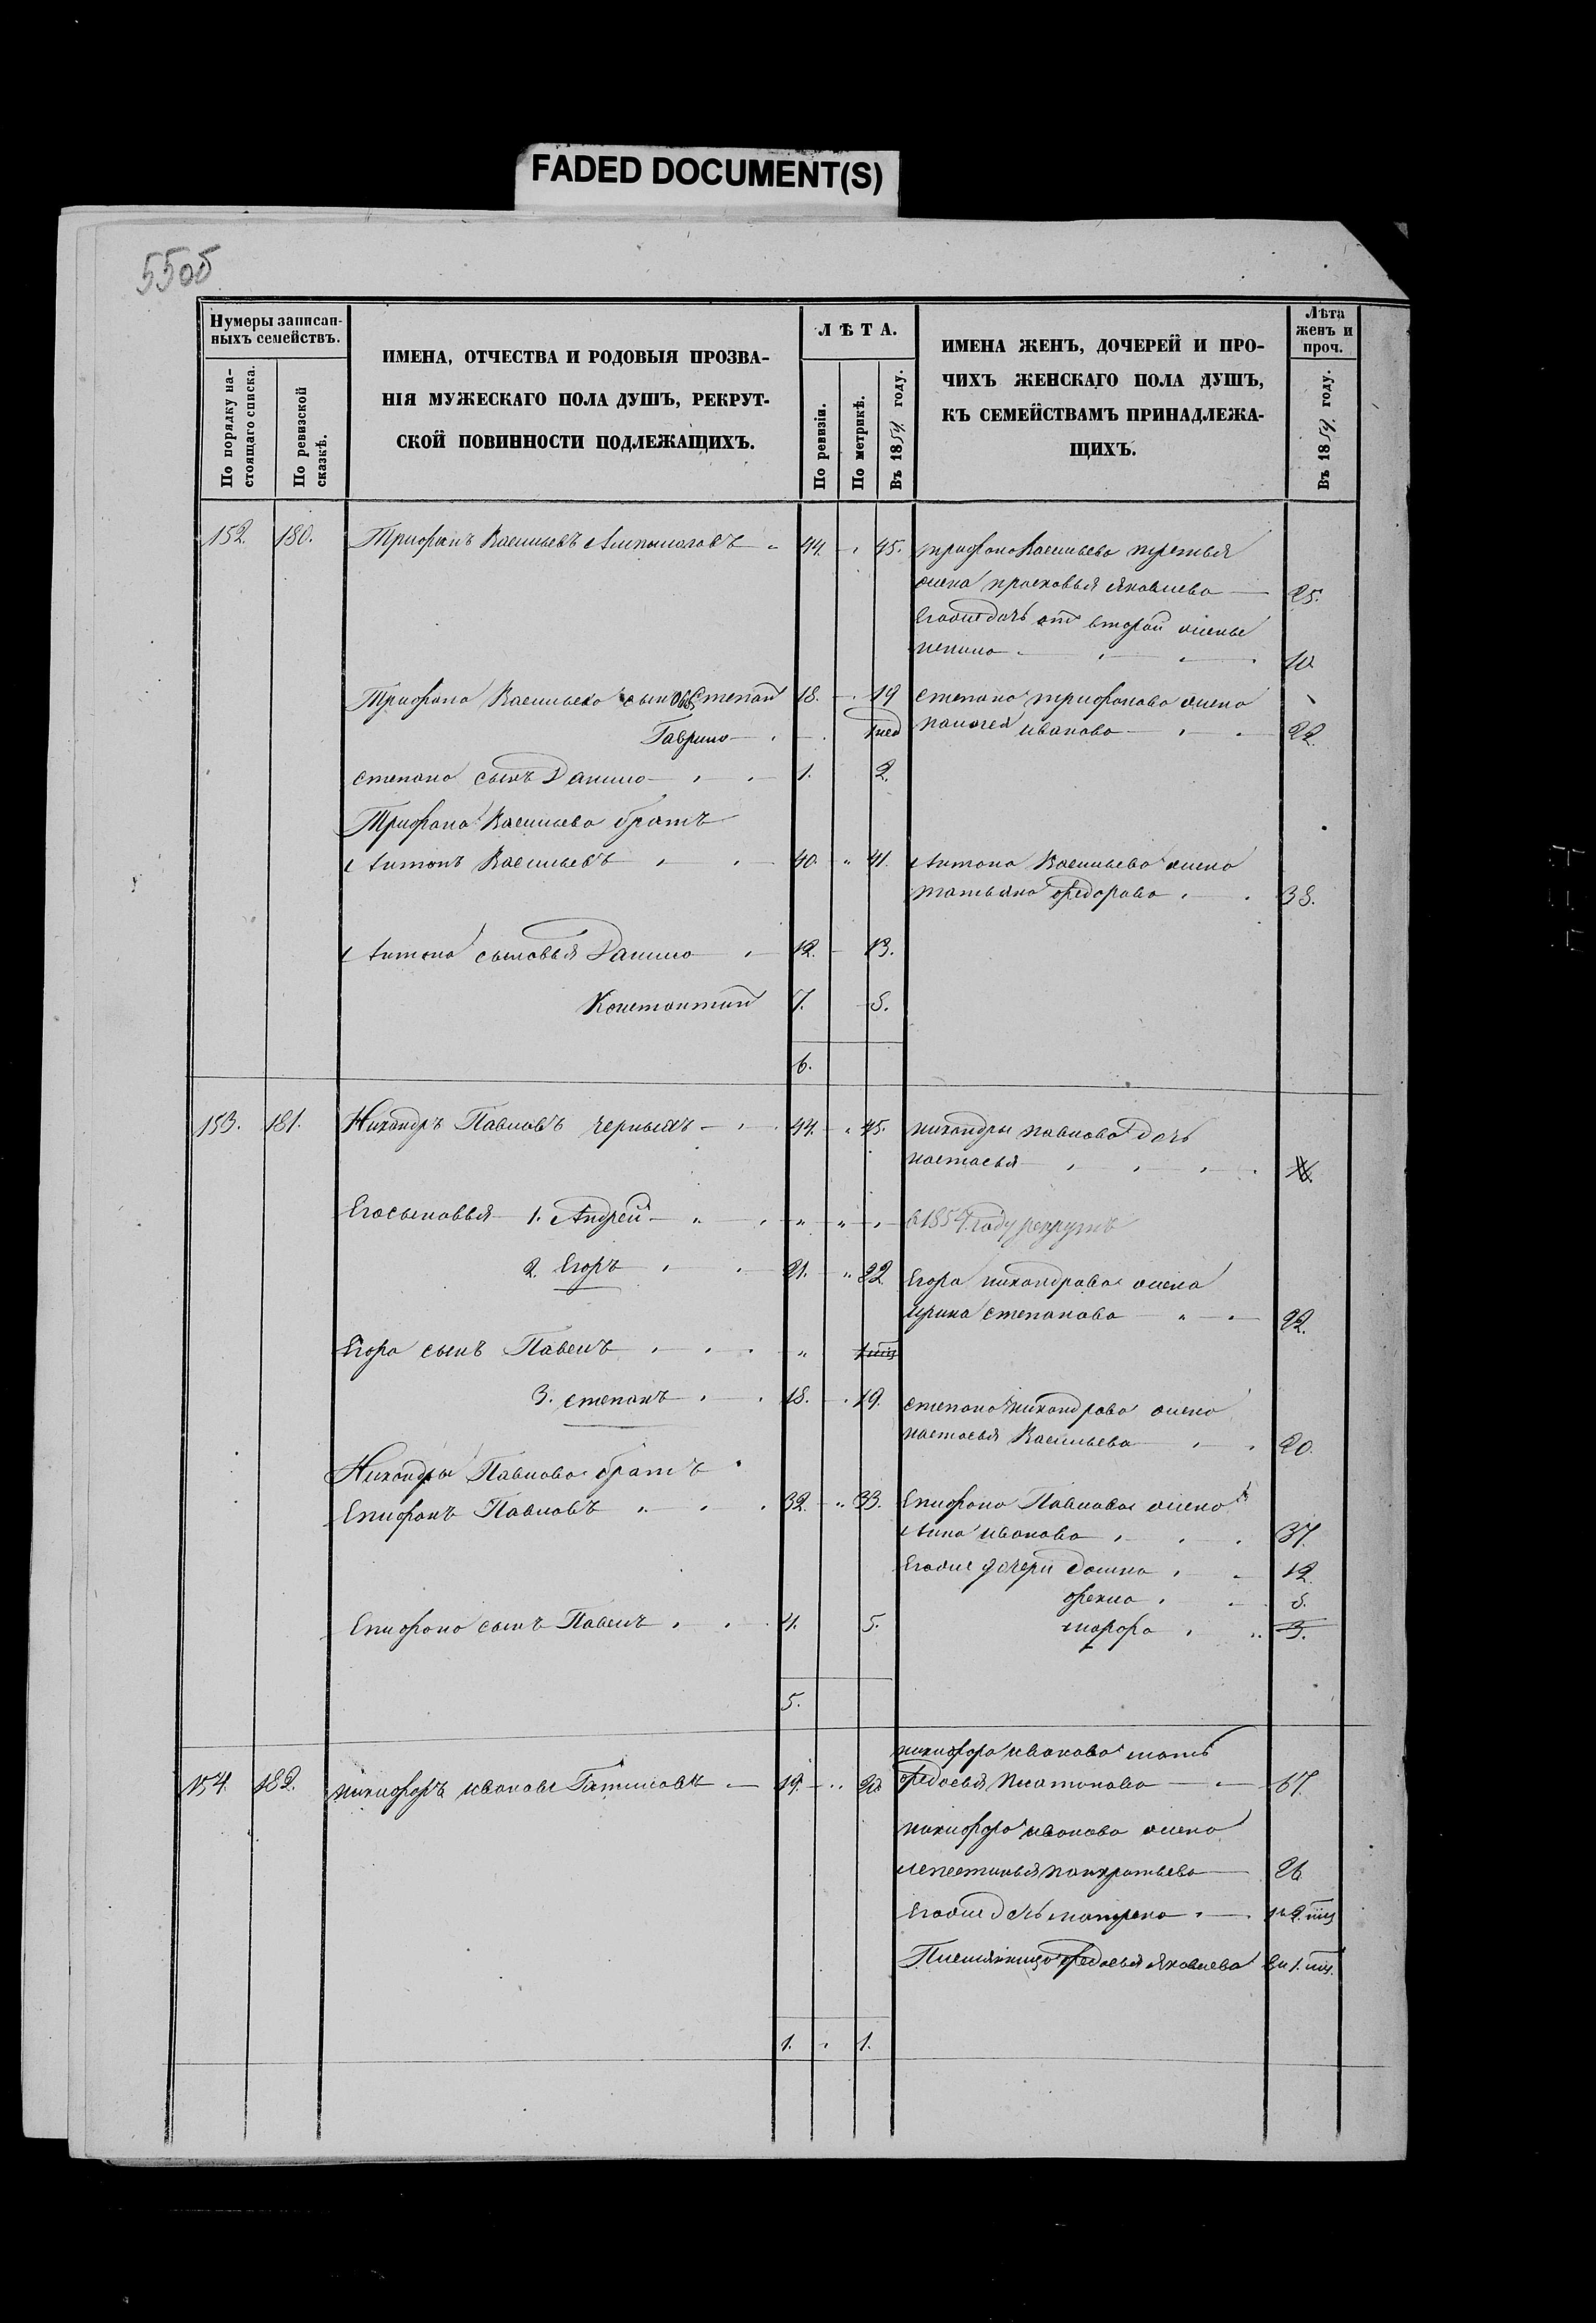 FADED DOCUMENT(S)
55об
Нумеры записан-
ныхъ семействъ.
По порядку на-
стоящаго списка.
По ревизской
сказкѣ.
ИМЕНА, ОТЧЕСТВА И РОДОВЫЯ ПРОЗВА-
НІЯ МУЖЕСКАГО ПОЛА ДУШЪ, РЕКРУТ-
СКОЙ ПОВИННОСТИ ПОДЛЕЖАЩИХЪ.
ЛѢТА.
По ревизіи.
По метрикѣ.
Въ 1859 году.
ИМЕНА ЖЕНЪ, ДОЧЕРЕЙ И ПРО-
ЧИХЪ ЖЕНСКАГО ПОЛА ДУШЪ,
КЪ СЕМЕЙСТВАМЪ ПРИНАДЛЕЖА-
ЩИХЪ.
Лѣта
женъ и
проч.
Въ 1859 году.
152. 180. Трифонъ Васильевъ 44. 45. трифона Васильева третья
жена прасковья Яковлева 25.
Егоже дочь отъ второй жены
10
Трифона Васильева сыновья Степан 18. 19 степана трифонова жена
Гаврило иванова 22.
степана сынъ Данило 1. 2.
Трифона Васильева братъ
Антонъ Васильевъ 40. 41. Антона Васильева жена
татьяна федорова 38.
Антона сыновья Данило 12. 13.
Констонтин 7. 8.
6.
153. 181. Никандръ Павловъ черныхъ 44. 45. никандры павлова дочь
настасья
Его сыновья 1. Андрей в 1854 году рекрутъ
2. Егоръ 21. 22. Егора никандрова жена
ирина степанова 22.
Егора сынъ Павелъ
3. степанъ 18. 19. степана никандрова жена
настасья Васильева 20.
Никандры Павлова братъ
Епифанъ Павловъ 32. 33. Епифана Павлова жена
Анна иванова 37.
Егоже дочери домна 12.
фекла 8.
Епифана сынъ Павелъ 4. 5. марфа 3.
5.
никифора иванова мать
154. 182. никифоръ ивановъ 19. 20 федосья Платонова 67.
никифора иванова жена
панкратьева 26
Егоже дочь матрена
Племянница федосья Яковлева
1. 1.